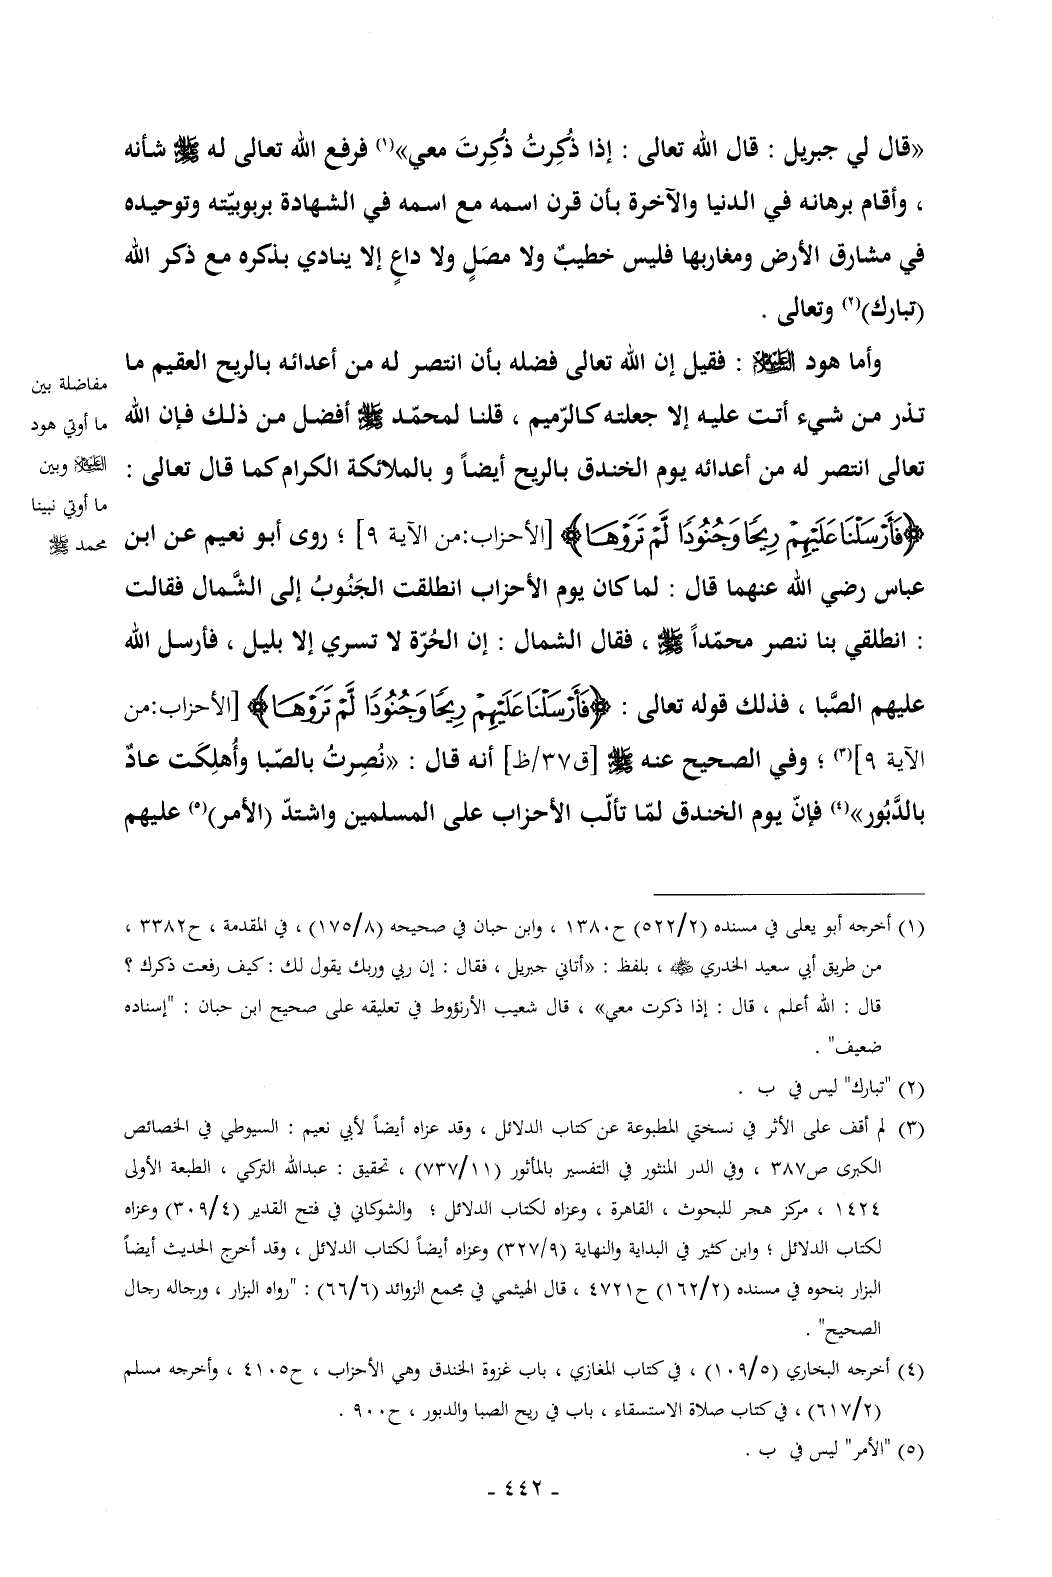 «قال لي جبريل : قال الله تعالى : إذا ذُكِرتُ ذُكِرتَ معي»(١) فرفع الله تعالى له ﷺ شأنه
، وأقام برهانه في الدنيا والآخرة بأن قرن اسمه مع اسمه في الشهادة بربوبيّته وتوحيده
في مشارق الأرض ومغاربها فليس خطيبٌ ولا مصَلٍ ولا داعٍ إلا ينادي بذكره مع ذكر الله
(تبارك)(٢) وتعالى .
وأما هود العَلَيْهِ السَّلَام : فقيل إن الله تعالى فضله بأن انتصر له من أعدائه بالريح العقيم ما
تذر من شيء أتت عليه إلا جعلته كالرّميم ، قلنا لمحمّد ﷺ أفضل من ذلك فإن الله
تعالى انتصر له من أعدائه يوم الخندق بالريح أيضاً و بالملائكة الكرام كما قال تعالى :
﴿فَأَرْسَلْنَا عَلَيْهِمْ رِيحًا وَجُنُودًا لَّمْ تَرَوْهَا﴾ [الأحزاب:من الآية ٩] ؛ روى أبو نعيم عن ابن
عباس رضي الله عنهما قال : لما كان يوم الأحزاب انطلقت الجَنُوبُ إلى الشَّمال فقالت
: انطلقي بنا ننصر محمّداً ﷺ ، فقال الشمال : إن الحُرّة لا تسري إلا بليل ، فأرسل الله
عليهم الصَّبا ، فذلك قوله تعالى : ﴿فَأَرْسَلْنَا عَلَيْهِمْ رِيحًا وَجُنُودًا لَّمْ تَرَوْهَا﴾ [الأحزاب:من
الآية ٩](٣) ؛ وفي الصحيح عنه ﷺ [ق٣٧/ظ] أنه قال : «نُصِرتُ بالصّبا وأُهلِكَت عادٌ
بالدَّبُور»(٤) فإنّ يوم الخندق لمّا تألّب الأحزاب على المسلمين واشتدّ (الأمر)(٥) عليهم
مفاضلة بين
ما أوتي هود
العَلَيْهِ السَّلَام وبين
ما أوتي نبينا
محمد ﷺ
(١) أخرجه أبو يعلى في مسنده (٥٢٢/٢) ح١٣٨٠ ، وابن حبان في صحيحه (١٧٥/٨) ، في المقدمة ، ح٣٣٨٢ ،
من طريق أبي سعيد الخدري رضي الله عنه ، بلفظ : «أتاني جبريل ، فقال : إن ربي وربك يقول لك : كيف رفعت ذكرك ؟
قال : الله أعلم ، قال : إذا ذكرت معي» ، قال شعيب الأرنؤوط في تعليقه على صحيح ابن حبان : "إسناده
ضعيف" .
(٢) "تبارك" ليس في ب .
(٣) لم أقف على الأثر في نسختي المطبوعة عن كتاب الدلائل ، وقد عزاه أيضاً لأبي نعيم : السيوطي في الخصائص
الكبرى ص٣٨٧ ، وفي الدر المنثور في التفسير بالمأثور (٧٣٧/١١) ، تحقيق : عبدالله التركي ، الطبعة الأولى
١٤٢٤ ، مركز هجر للبحوث ، القاهرة ، وعزاه لكتاب الدلائل ؛ والشوكاني في فتح القدير (٣٠٩/٤) وعزاه
لكتاب الدلائل ؛ وابن كثير في البداية والنهاية (٣٢٧/٩) وعزاه أيضاً لكتاب الدلائل ، وقد أخرج الحديث أيضاً
البزار بنحوه في مسنده (١٦٢/٢) ح٤٧٢١ ، قال الهيثمي في مجمع الزوائد (٦٦/٦) : "رواه البزار ، ورجاله رجال
الصحيح" .
(٤) أخرجه البخاري (١٠٩/٥) ، في كتاب المغازي ، باب غزوة الخندق وهي الأحزاب ، ح٤١٠٥ ، وأخرجه مسلم
(٦١٧/٢) ، في كتاب صلاة الاستسقاء ، باب في ريح الصبا والدبور ، ح٩٠٠ .
(٥) "الأمر" ليس في ب .
- ٤٤٢ -